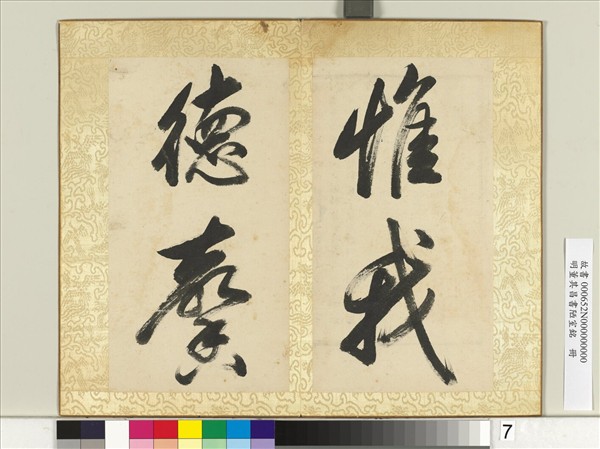 惟我
德馨
故書000652N000000000
明董其昌書陋室銘 冊
7